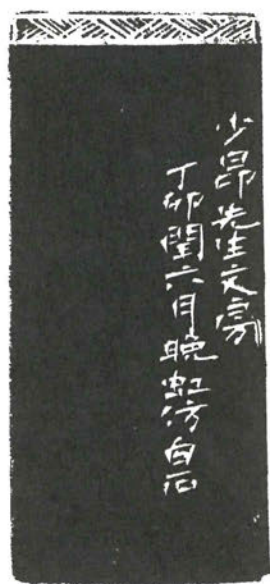 少昂先生文房
丁卯閏六月晚虹仿白石